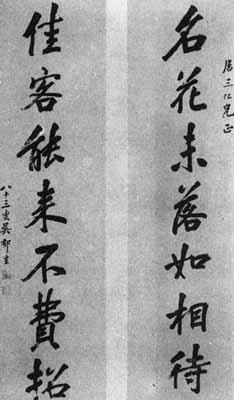 三仁兄正
名花未落如相待
佳客能来不費招
八十三叟吳郁生